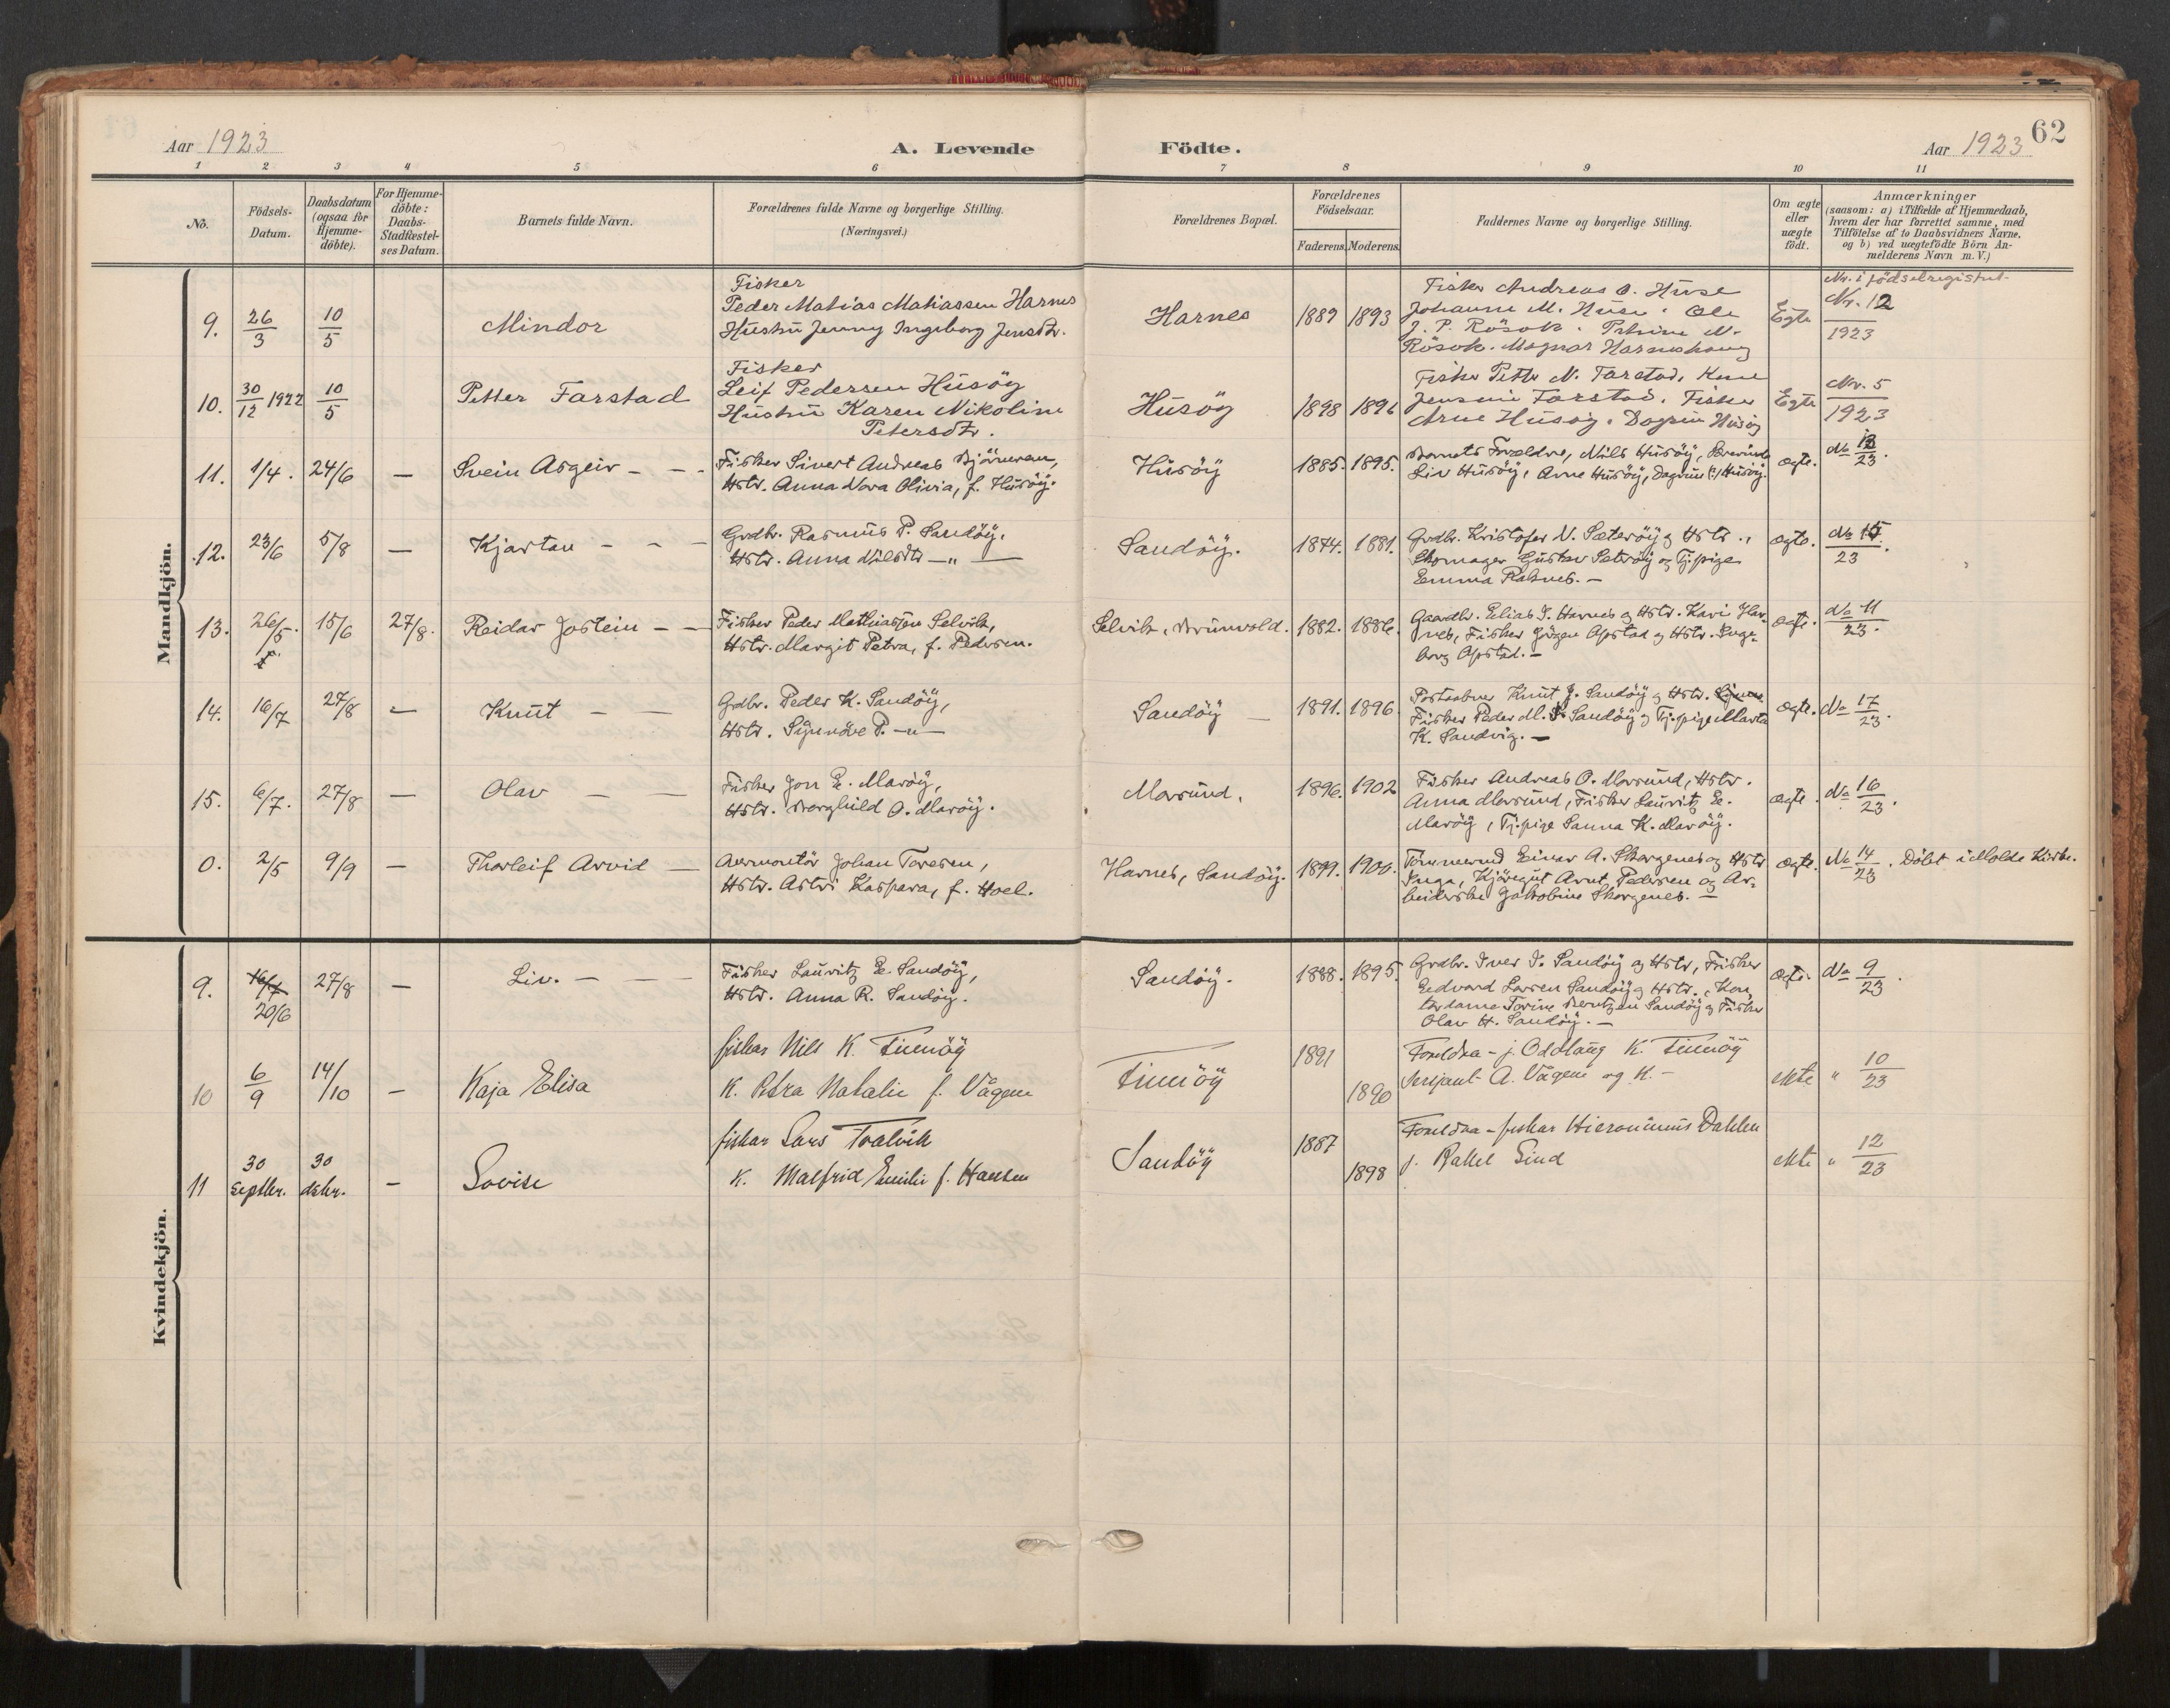 62
Aar 1923 A. Levende Födte. Aar 1923
1 2 3 4 5 6 7 8 9 10 11
No.
Födsels-
Datum.
Daabsdatum
(ogsaa for
Hjemme-
döbte).
For Hjemme-
döbte:
Daabs-
Stadfæstel-
ses Datum.
Barnets fulde Navn.
Forældrenes fulde Navne og borgerlige Stilling.
(Næringsvei.)
Forældrenes Bopæl.
Forældrenes
Födselsaar.
Faderens. Moderens.
Faddernes Navne og borgerlige Stilling.
Om ægte
eller
uægte
födt.
Anmærkninger
(saasom: a) i Tilfælde af Hjemmedaab,
hvem der har forrettet samme, med
Tilföielse af to Daabsvidners Navne.
og b) ved uægtefödte Börn An-
melderens Navn m.V.)
Mandkjön.
9. 26/3 10/5 Mindor
Fisker
Peder Matias Matiassen Harnes
Hustru Jenny Ingeborg Jensdtr.
Harnes 1889 1893
Fisker Andreas O. Huse
Johanne M. Huse. Ole
J. P. Rösok. Petrine M.
Rösok. Magnar Harneshaug
Egte
Nr. i födselregistret
Nr. 12
1923
10. 30/12 1922 10/5 Petter Farstad
Fisker
Leif Pedersen Husöy
Hustru Karen Nikoline
Petersdtr.
Husöy 1898 1896
Fisker Petter N. Farstad, Kone
Jensine Farstad. Fisker
Arne Husöy. Dagrun Husöy
Egte
Nr. 5
1923
11. 1/4. 24/6 — Svein Asgeir - - -
Fisker Sivert Andreas Björneren,
Hstr. Anna Nora Olivia, f. Husöy.
Husöÿ 1885. 1895.
Barnets Forældre, Nils Husöÿ,
Liv Husöÿ, Arne Husöÿ, Dagrun (?) Husöÿ.
ægte. No 13/23.
12. 23/6 5/8 — Kjartan - - -
Grdbr. Rasmus P. Sandöÿ,
Hstr. Anna Nilsdtr —"—
Sandöÿ. 1874. 1881.
Grdbr. Kristofer N. Sæteröÿ og Hstr.,
Skomager Gustav Sæteröÿ og Tj.pige
Emma Raknes. —
ægte. No 15/23.
13. 26/5. 15/6 27/8. Reidar Jostein - -
Fisker Peder Mathiassen Selvik,
Hstr. Margit Petra, f. Pedersen.
Selvik, Brunvold. 1882. 1886.
Gaardbr. Elias I. Harnes og Hstr. Kari Har-
nes, Fisker Jörgen Opstad og Hstr. Inge-
borg Opstad. —
ægte. No 11/23.
14. 16/7 27/8 — Knut - -
Grdbr. Peder K. Sandöÿ,
Hstr. Synnöve P. —"—
Sandöÿ — 1891. 1896.
Postaabner Knut J. Sandöÿ og Hstr.
Fisker Peder M. Sandöÿ og Tj.pige Marta
K. Sandvig. —
ægte. No 17/23.
15. 6/7. 27/8 — Olav - -
Fisker Jon E. Maröÿ,
Hstr. Borghild O. Maröÿ.
Morsund. 1896. 1902
Fisker Andreas O. Morsund, Hstr.
Anna Morsund, Fisker Lauritz E.
Maröÿ, Tj.pige Sanna K. Maröÿ.
ægte. No 16/23.
0. 2/5 9/9 — Thorleif Arvid —
Aermontör Johan Toresen,
Hstr. Astri Kaspara, f. Hoel.
Harnes, Sandöÿ. 1899. 1900.
Tömmermd Einar A. Skorgenes og Hstr
Inga, Kjöregut Arnt Pedersen og Ar-
beiderske Jakobine Skorgenes. —
ægte. No 14/23. Döbt i Molde Kirke.
Kvindekjön.
9. 16/7 20/6 27/8 — Liv. - - -
Fisker Lauritz E. Sandöÿ,
Hstr. Anna R. Sandöÿ.
Sandöÿ. 1888. 1895.
Grdbr. Iver I. Sandöÿ og Hstr, Fisker
Edvard Larsen Sandöÿ og Hstr., Kon-
tordame Torine Berntzen Sandöÿ og Fisker
Olav H. Sandöÿ. —
ægte. No 9/23.
10 6/9 14/10 — Kaja Elisa
fiskar Nils K. Finnöÿ
K. Petra Natalie f. Vågen
Finnöÿ 1891 1890
Foreldra - j. Oddlaug K. Finnöÿ
Serijant A. Vågen og K. -
ekte " 10/23
11 30 septbr. 30 dsbr. — Lovise
fiskar Lars Tralvik
K. Malfrid Emilie f. Hansen
Sandöÿ 1887 1898
Foreldra - fiskar Hieronimus Dahlen
j. Rakel Lind
ekte " 12/23